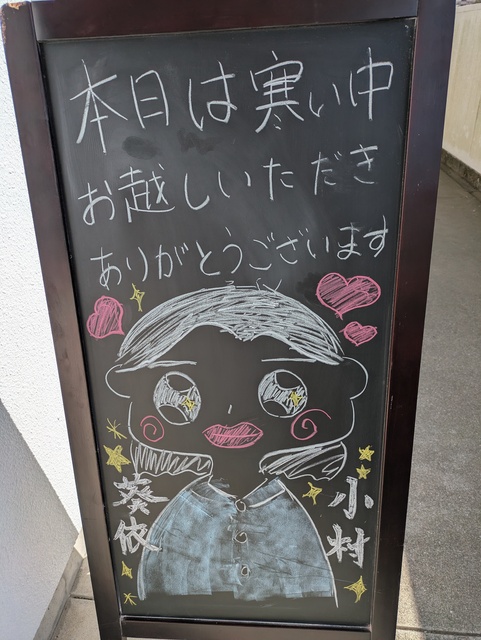 本日は寒い中
お越しいただき
ありがとうございます
小村
葵依